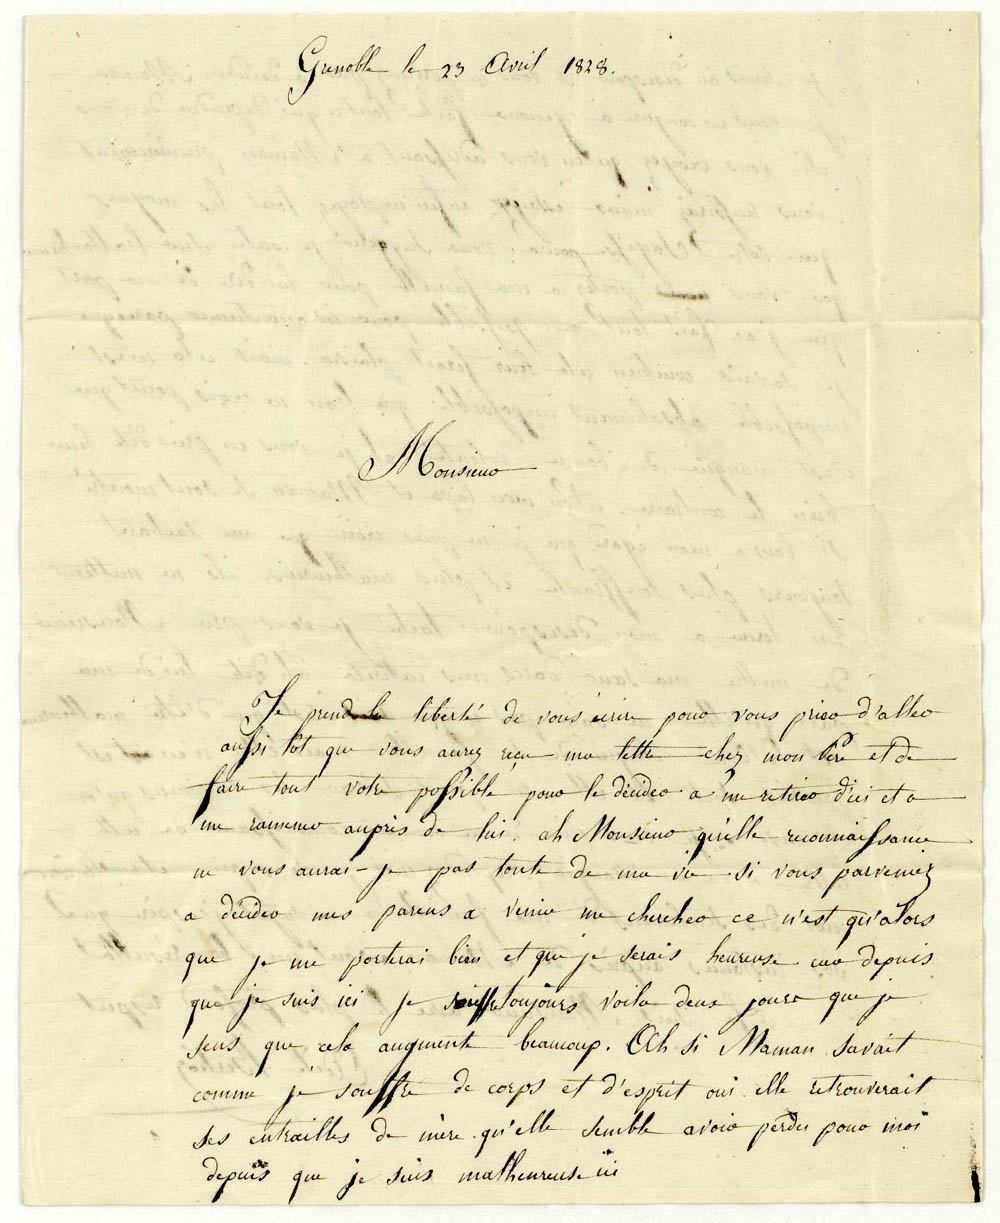 Grenoble le 23 Avril 1828.
Monsieur
Je prends la liberté de vous écrire pour vous prier d'aller
aussi tôt que vous aurez reçu ma lettre chez mon Père et de
faire tout votre possible pour le décider a me retirer d'ici et a
me ramener auprès de lui. ah Monsieur qu'elle reconnaissance
ne vous aurai-je pas toute de ma vie si vous parveniez
a décider mes parens a venir me chercher ce n'est qu'alors
que je me porterai bien et que je serais heureuse car depuis
que je suis ici je souffre toujours voila deux jours que je
sens que cela augmente beaucoup. Oh si Maman savait
comme je souffre de corps et d'esprit oui elle retrouverait
ses entrailles de mère qu'elle semble avoir perdu pour moi
depuis que je suis malheureuse ici